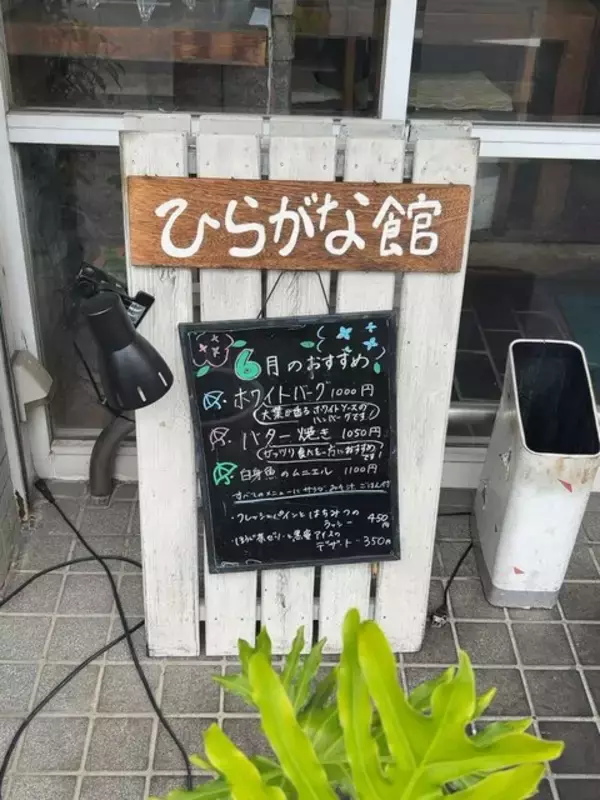 ひらがな館
6月のおすすめ
ホワイトバーグ 1000円
大葉が香るホワイトソースの
ハンバーグです！
バター焼き 1050円
ガッツリ食べたい方におすすめ
です！
白身魚のムニエル 1100円
すべてのメニューに サラダ、みそ汁、ごはん付
・フレッシュパインとはちみつの
ラッシー 450円
・ほうじ茶ゼリーと黒蜜アイスの
デザート - 350円